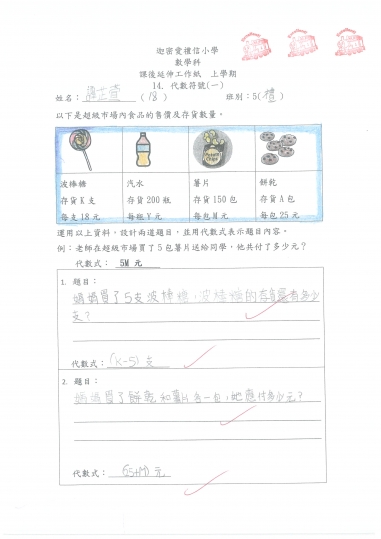 迦密愛禮信小學
數學科
課後延伸工作紙 上學期
14. 代數符號(一)
姓名： (18) 班別：5(禮)
以下是超級市場內食品的售價及存貨數量。
波棒糖 汽水 薯片 餅乾
存貨 K 支 存貨 200 瓶 存貨 150 包 存貨 A 包
每支 18 元 每瓶 Y 元 每包 M 元 每包 25 元
運用以上資料，設計兩道題目，並用代數式表示題目內容。
例：老師在超級市場買了 5 包薯片送給同學，他共付了多少元？
代數式： 5M 元
1. 題目：
媽媽買了5支波棒糖，波棒糖的存貨還有多少
支？
代數式：(K-5)支
2. 題目：
媽媽買了餅乾和薯片各一包，她應付多少元？
代數式：(25+M)元